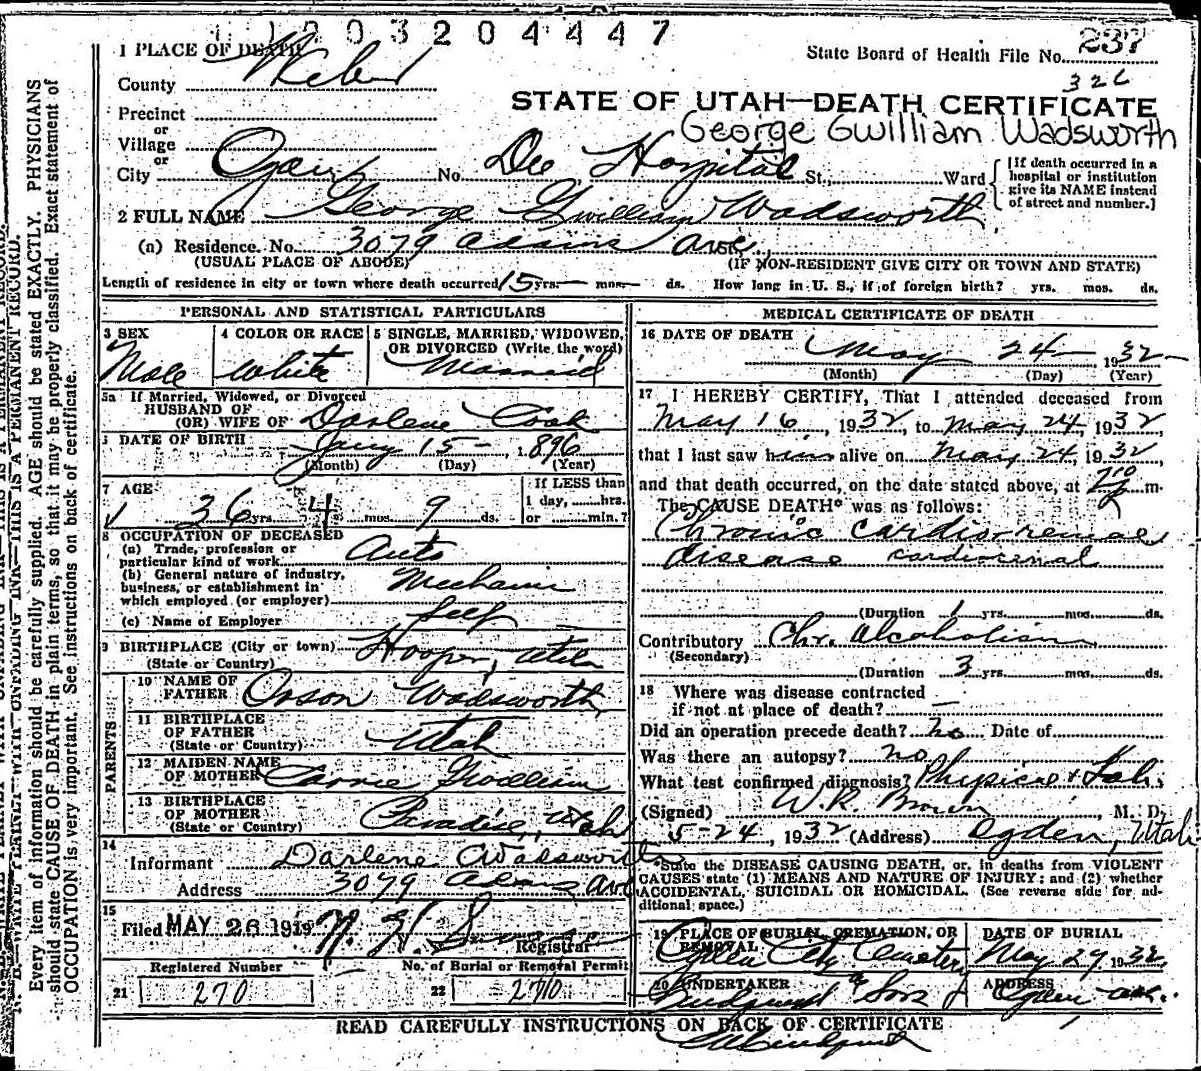 1 1 0 0 3 2 0 4 4 4 7
1 PLACE OF DEATH
State Board of Health File No. 237
326
County Weber
STATE OF UTAH—DEATH CERTIFICATE
Precinct
George Gwilliam Wadsworth
or
Village
or
City Ogden No. Dee Hospital St., Ward
[If death occurred in a hospital or institution give its NAME instead of street and number.]
2 FULL NAME George Gwilliam Wadsworth
(a) Residence. No. 3079 Adams Ave St.,
(USUAL PLACE OF ABODE) (IF NON-RESIDENT GIVE CITY OR TOWN AND STATE)
Length of residence in city or town where death occurred 15 yrs. — mos. — ds. How long in U. S., if of foreign birth? yrs. mos. ds.
PERSONAL AND STATISTICAL PARTICULARS
3 SEX 4 COLOR OR RACE 5 SINGLE, MARRIED, WIDOWED,
OR DIVORCED (Write the word)
Male White Married
5a If Married, Widowed, or Divorced
HUSBAND OF
(OR) WIFE OF Darlene Cook
DATE OF BIRTH Jany 15 — 1896
(Month) (Day) (Year)
7 AGE If LESS than
1 day, hrs.
36 yrs. 4 mos. 9 ds. or min.?
8 OCCUPATION OF DECEASED
(a) Trade, profession or
particular kind of work Auto
(b) General nature of industry,
business, or establishment in
which employed (or employer) Mechanic
(c) Name of Employer Self
9 BIRTHPLACE (City or town) Hooper, Utah
(State or Country)
PARENTS
10 NAME OF
FATHER Orson Wadsworth
11 BIRTHPLACE
OF FATHER Utah
(State or Country)
12 MAIDEN NAME
OF MOTHER Carrie Gwilliam
13 BIRTHPLACE
OF MOTHER Paradise, Utah
(State or Country)
14
Informant Darlene Wadsworth
Address 3079 Adams Ave
15
Filed MAY 26 1919 Registrar
Registered Number No. of Burial or Removal Permit
21 270 22 2710
MEDICAL CERTIFICATE OF DEATH
16 DATE OF DEATH May 24 — 1932
(Month) (Day) (Year)
17 I HEREBY CERTIFY, That I attended deceased from
May 16, 1932, to May 24, 1932
that I last saw him alive on May 24, 1932,
and that death occurred, on the date stated above, at m.
The CAUSE DEATH* was as follows:
Chronic cardio-renal
disease cardiorenal
(Duration 1 yrs. mos. ds.
Contributory Chr. Alcoholism
(Secondary)
(Duration 3 yrs. mos. ds.
18 Where was disease contracted
if not at place of death? —
Did an operation precede death? no Date of
Was there an autopsy? no
What test confirmed diagnosis? Physical + Lab.
(Signed) W. R. Brown, M. D.
5-24, 1932 (Address) Ogden, Utah
*State the DISEASE CAUSING DEATH, or, in deaths from VIOLENT
CAUSES state (1) MEANS AND NATURE OF INJURY; and (2) whether
ACCIDENTAL, SUICIDAL OR HOMICIDAL. (See reverse side for ad-
ditional space.)
19 PLACE OF BURIAL, CREMATION, OR DATE OF BURIAL
REMOVAL
Ogden City Cemetery May 27 1932
20 UNDERTAKER ADDRESS
& Sons Ogden
READ CAREFULLY INSTRUCTIONS ON BACK OF CERTIFICATE
N. B.—WRITE PLAINLY WITH UNFADING INK—THIS IS A PERMANENT RECORD.
Every item of information should be carefully supplied. AGE should be stated EXACTLY. PHYSICIANS
should state CAUSE OF DEATH in plain terms, so that it may be properly classified. Exact statement of
OCCUPATION is very important. See instructions on back of certificate.